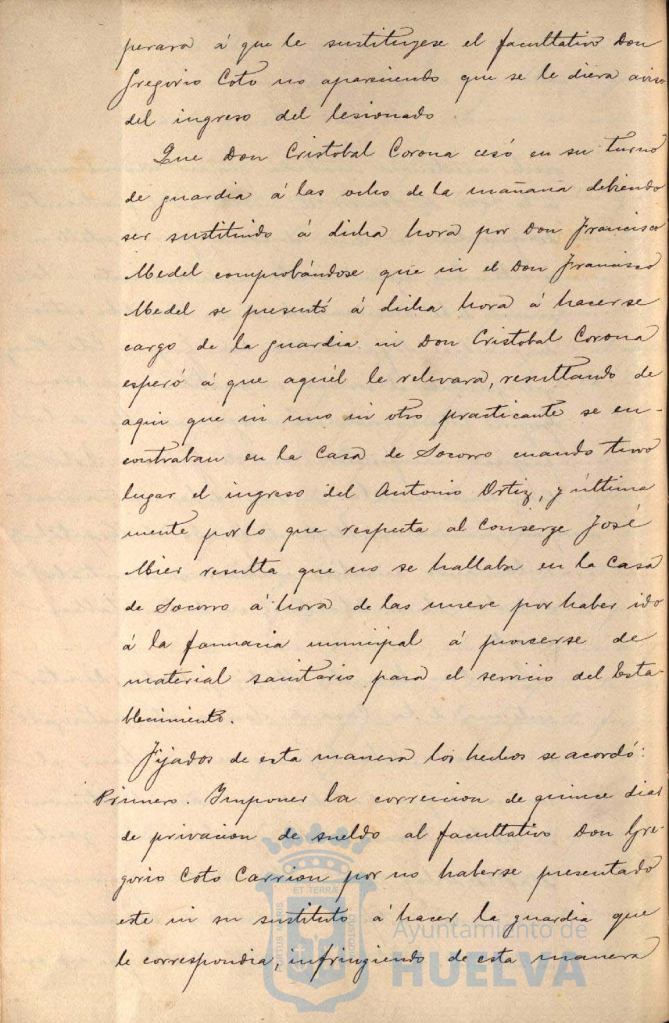 perara á que le sustituyese el facultativo Don
Gregorio Coto no apareciendo que se le diera aviso
del ingreso del lesionado.
Que Don Cristobal Corona cesó en su turno
de guardia á las ocho de la mañana debiendo
ser sustituido á dicha hora por Don Francisco
Medel comprobándose que ni el Don Francisco
Medel se presentó á dicha hora á hacerse
cargo de la guardia ni Don Cristobal Corona
esperó á que aquél le relevara, resultando de
aqui que ni uno ni otro practicante se en-
contraban en la Casa de Socorro cuando tuvo
lugar el ingreso del Antonio Ortiz, y última
mente por lo que respecta al Conserge José
Mier resulta que no se hallaba en la Casa
de Socorro á hora de las nueve por haber ido
á la farmacia municipal á proveerse de
material sanitario para el servicio del Esta-
blecimiento.
Fijados de esta manera los hechos se acordó:
Primero. Imponer la correccion de quince dias
de privacion de sueldo al facultativo Don Gre-
gorio Coto Carrion por no haberse presentado
este ni su sustituto á hacer la guardia que
le correspondia, infringiendo de esta manera
Ayuntamiento de
HUELVA